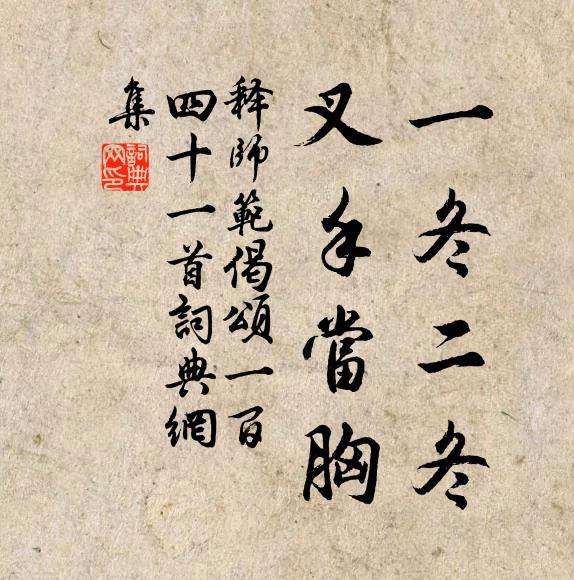 一冬二冬
叉手當胸
释師範偈頌一百
四十一首詞典網
集
詞典网印